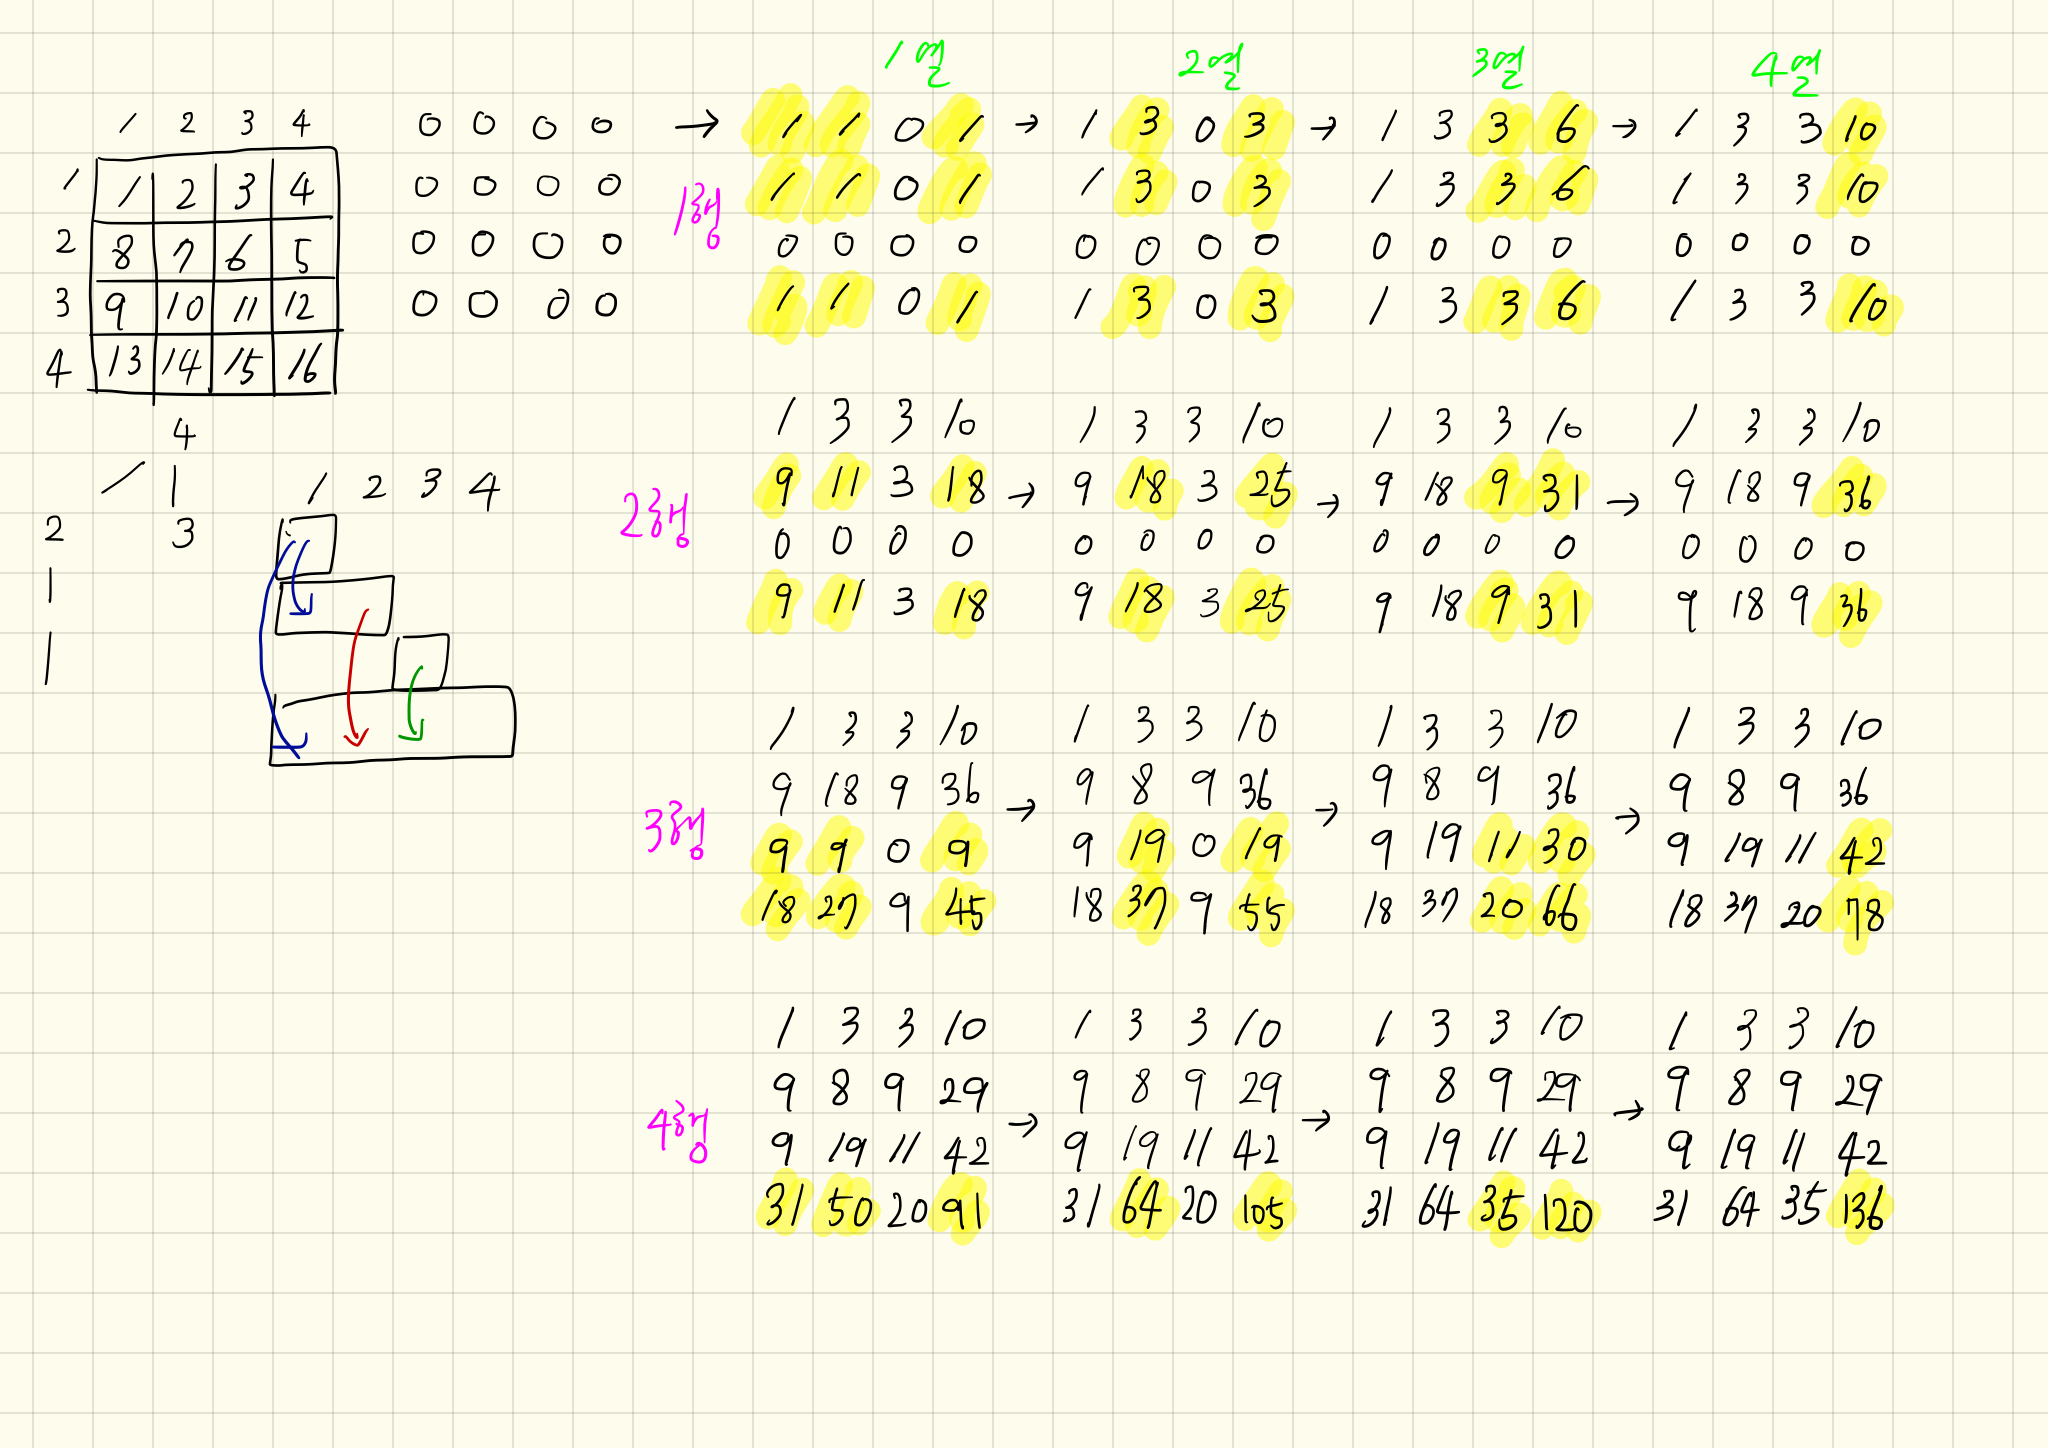 1열 2열 3열 4열
1 2 3 4
1 1 2 3 4
2 8 7 6 5
3 9 10 11 12
4 13 14 15 16
0 0 0 0
0 0 0 0
0 0 0 0
0 0 0 0
4
1 1
2 3
1
1
1 2 3 4
1행
→ 1 1 0 1 → 1 3 0 3 → 1 3 3 6 → 1 3 3 10
1 1 0 1 1 3 0 3 1 3 3 6 1 3 3 10
0 0 0 0 0 0 0 0 0 0 0 0 0 0 0 0
1 1 0 1 1 3 0 3 1 3 3 6 1 3 3 10
2행
1 3 3 10 1 3 3 10 1 3 3 10 1 3 3 10
9 11 3 18 → 9 18 3 25 → 9 18 9 31 → 9 18 9 36
0 0 0 0 0 0 0 0 0 0 0 0 0 0 0 0
9 11 3 18 9 18 3 25 9 18 9 31 9 18 9 36
3행
1 3 3 10 1 3 3 10 1 3 3 10 1 3 3 10
9 18 9 36 → 9 8 9 36 → 9 8 9 36 → 9 8 9 36
9 9 0 9 9 19 0 19 9 19 11 30 9 19 11 42
18 27 9 45 18 37 9 55 18 37 20 66 18 37 20 78
4행
1 3 3 10 1 3 3 10 1 3 3 10 1 3 3 10
9 8 9 29 → 9 8 9 29 → 9 8 9 29 → 9 8 9 29
9 19 11 42 9 19 11 42 9 19 11 42 9 19 11 42
31 50 20 91 31 64 20 105 31 64 35 120 31 64 35 136